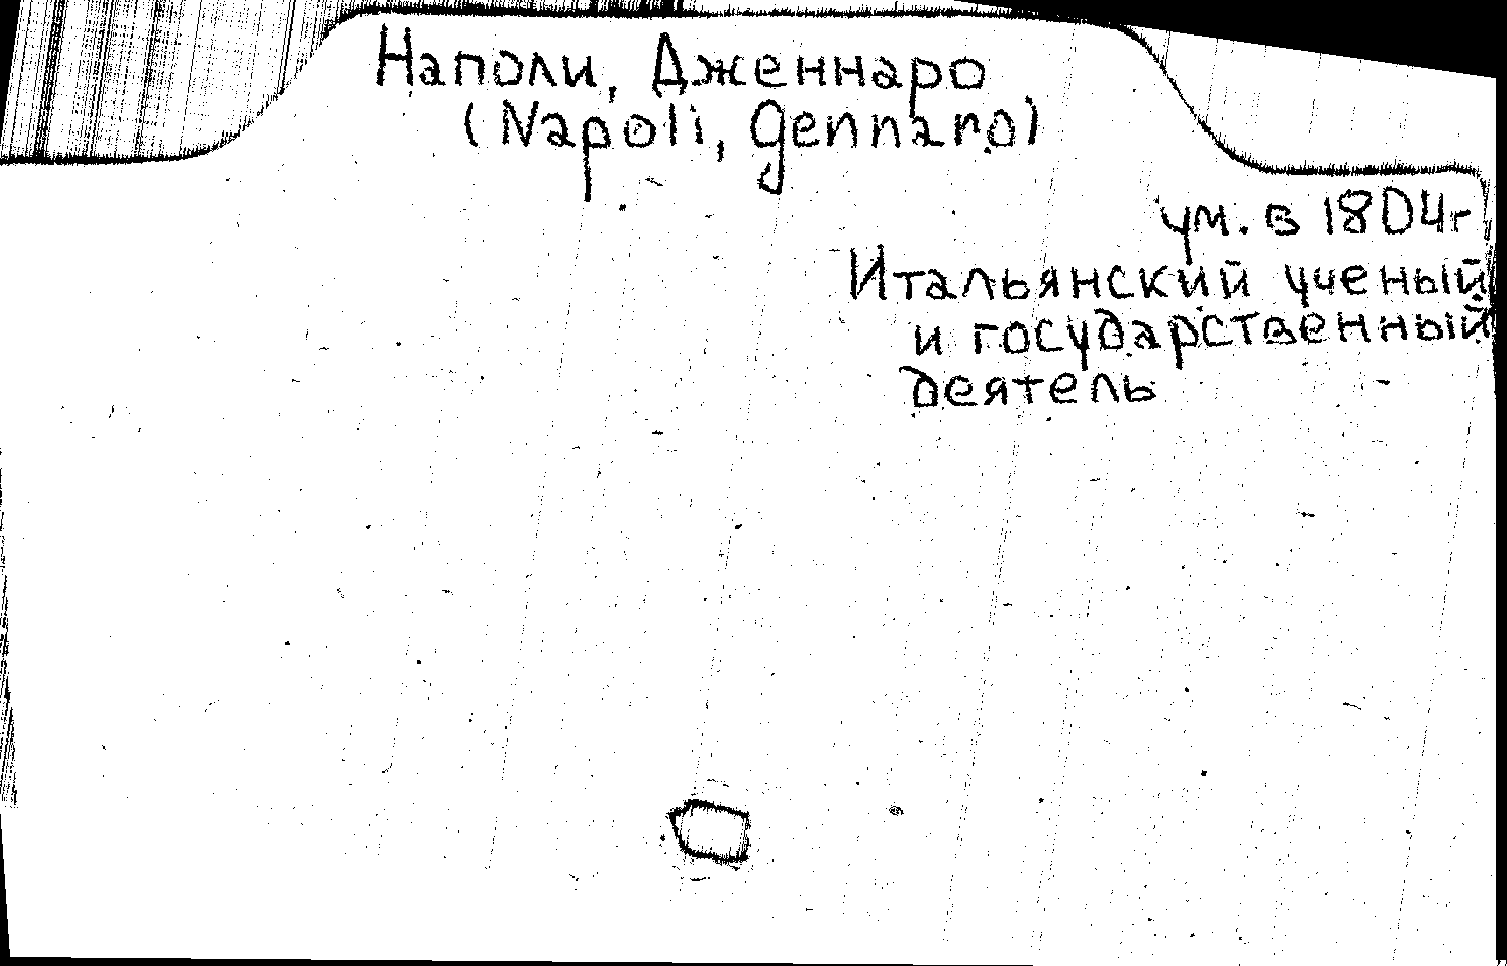 Наполи, Дженнаро
(Napoli, Gennaro)
ум. в 1804г
Итальянский ученый
и государственный
деятель